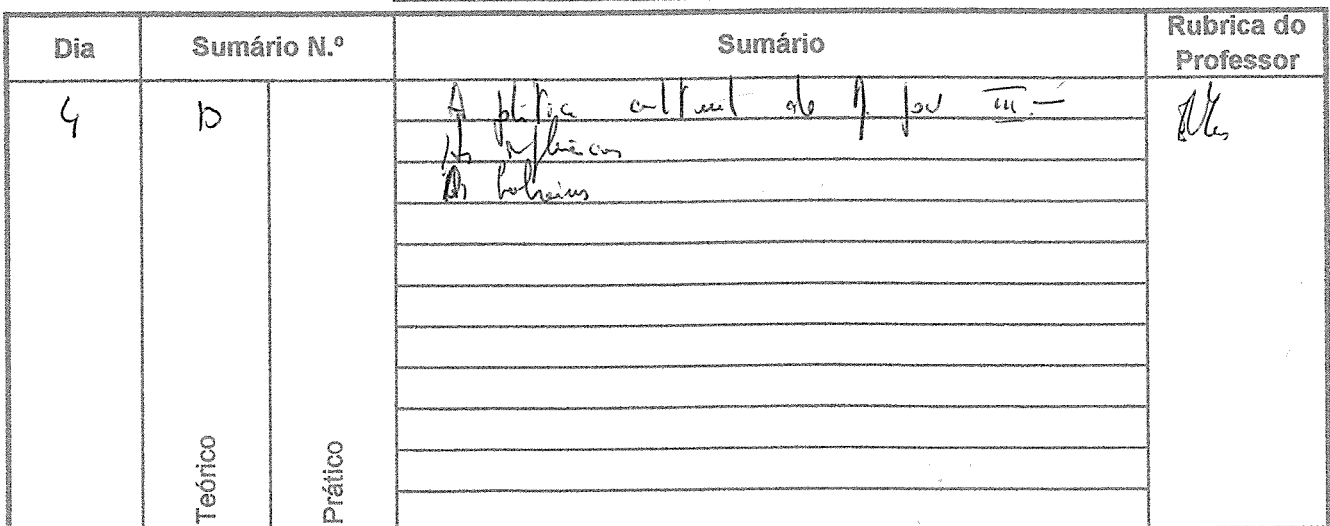 Dia Sumário N.º Sumário Rubrica do Professor
4 10 A política cultural de D. João III. —
As influências
Os bolseiros
Teórico Prático